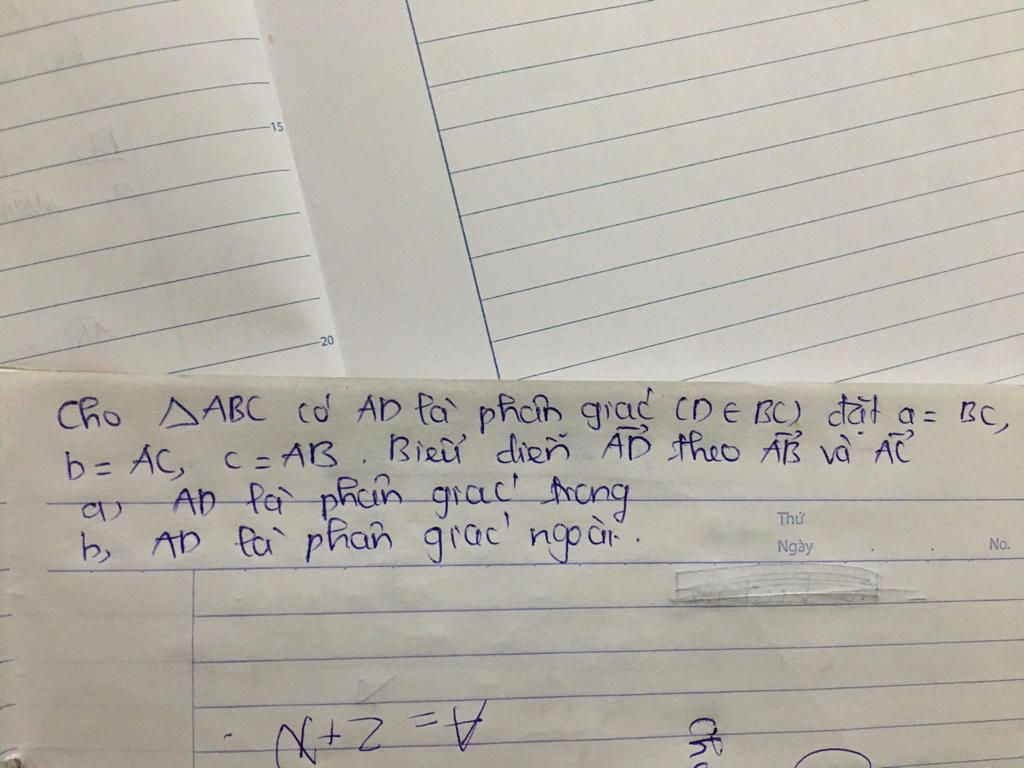 15
20
Cho △ABC có AD là phân giác (D ∈ BC) đặt a = BC,
b = AC, c = AB. Biểu diễn AD⃗ theo AB⃗ và AC⃗
a, AD là phân giác trong
b, AD là phân giác ngoài.
Thứ
Ngày
No.